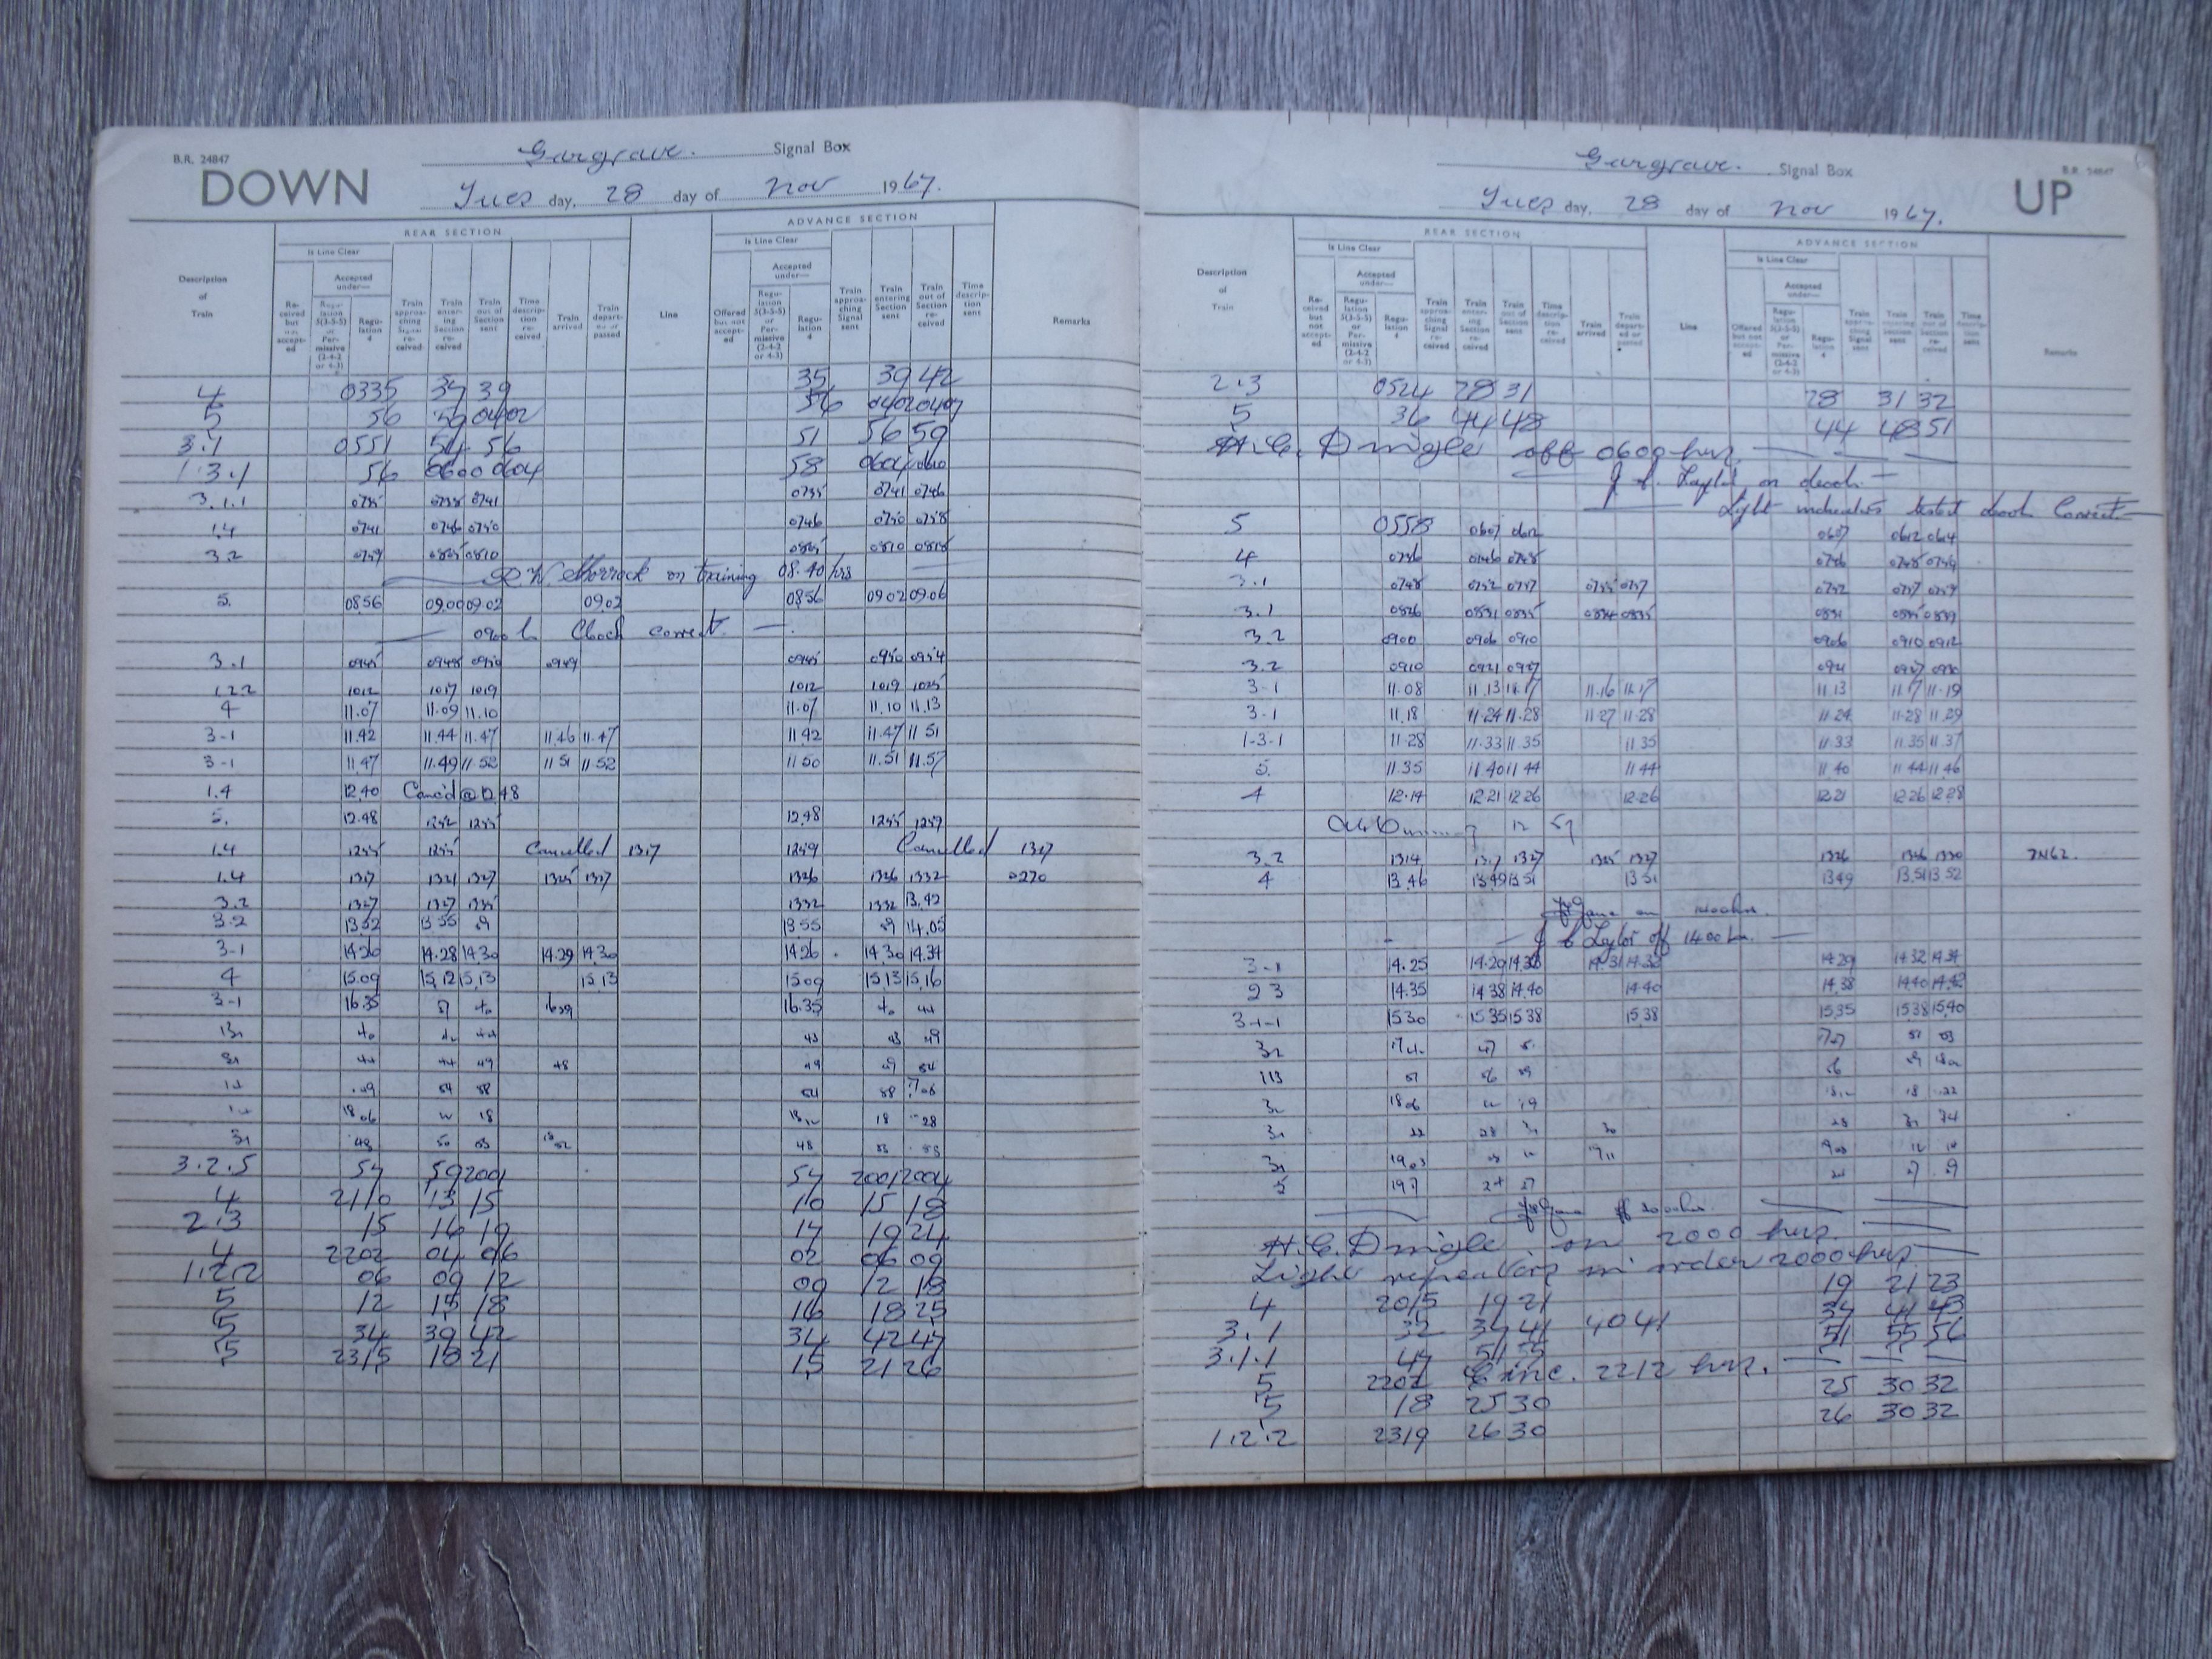 B.R. 24847
DOWN
Gargrave. Signal Box
Tues day, 28 day of Nov 1967.
REAR SECTION
ADVANCE SECTION
Is Line Clear
Is Line Clear
Description of Train
Accepted under—
Re-ceived but not accept-ed
Regu-lation 3(3-5-5) or Per-missive (2-4-2 or 4-3)
Regu-lation 4
Train approa-ching Signal re-ceived
Train enter-ing Section re-ceived
Train out of Section sent
Time descrip-tion re-ceived
Train arrived
Train depart-ed or passed
Line
Offered but not accept-ed
Accepted under—
Regu-lation 3(3-5-5) or Per-missive (2-4-2 or 4-3)
Regu-lation 4
Train approa-ching Signal sent
Train entering Section sent
Train out of Section re-ceived
Time descrip-tion sent
Remarks
4 0335 37 39 35 39 42
5 56 59 0402 56 0402 0407
3.1 0551 54 56 51 56 59
1.3.1 56 0600 0604 58 0604 0610
3.1.1 0735 0738 0741 0735 0741 0746
1.4 0741 0746 0750 0746 0750 0758
3.2 0759 0805 0810 0805 0810 0815
on training 08.40 hrs
5. 0856 0900 0902 0902 0856 0902 0906
0900 h Clock correct.
3.1 0945 0948 0950 0949 0945 0950 0954
1.2.2 1012 1017 1019 1012 1019 1025
4 11.07 11.09 11.10 11.07 11.10 11.13
3-1 11.42 11.44 11.47 11.46 11.47 11.42 11.47 11 51
3-1 11.47 11.49 11 52 11 51 11 52 11 50 11.51 11.57
1.4 12.40 Canc'd @ 12.48
5. 12.48 1252 1255 12.48 1255 1259
1.4 1255 1255 Cancelled 1317 1259 Cancelled 1317
1.4 1317 1321 1327 1325 1327 1326 1326 1332
3.2 1327 1327 1335 1332 1332 13.42
3.2 13 52 13 55 59 13 55 59 14.05
3-1 14.26 14.28 14.30 14.29 14.30 14.26 14.30 14.34
4 15.09 15.12 15.13 15.13 15 09 15.13 15.16
3-1 16.35 37 40 1639 16.35 40 44
40 44 43 43 49
31 44 44 49 48 49 49 54
49 54 58 54 58
1806 12 18 18 28
31 48 50 53 48 53 58
3.2.5 57 59 2001 57 2001 2004
4 2110 13 15 10 15 18
2.3 15 16 19 17 19 24
4 2202 04 06 02 06 09
1.2.2 06 09 12 09 12 18
5 12 15 18 16 18 25
5 34 39 42 34 42 47
5 2315 18 21 15 21 26
Gargrave. Signal Box
B.R. 24847
Tues day, 28 day of Nov 1967.
UP
REAR SECTION
ADVANCE SECTION
Is Line Clear
Is Line Clear
Description of Train
Accepted under—
Re-ceived but not accept-ed
Regu-lation 3(3-5-5) or Per-missive (2-4-2 or 4-3)
Regu-lation 4
Train approa-ching Signal re-ceived
Train enter-ing Section re-ceived
Train out of Section sent
Time descrip-tion re-ceived
Train arrived
Train depart-ed or passed
Line
Offered but not accept-ed
Accepted under—
Regu-lation 3(3-5-5) or Per-missive (2-4-2 or 4-3)
Regu-lation 4
Train approa-ching Signal sent
Train entering Section sent
Train out of Section re-ceived
Time descrip-tion sent
Remarks
2.3 0524 28 31 28 31 32
5 36 44 48 44 48 51
off 0600 hrs.
on
Light indicators tested Correct
5 0558 0607 0612 0607 0612 0614
4 0736 0746 0748 0746 0748 0754
3.1 0748 0752 0757 0755 0757 0752 0757 0759
3.1 0826 0831 0835 0834 0835 0831 0835 0839
3.2 0900 0906 0910 0906 0910 0912
3.2 0910 0921 0927 0921 0927 0930
3-1 11.08 11.13 11.17 11.16 11.17 11.13 11.17 11.19
3-1 11.18 11.24 11.28 11.27 11.28 11.24 11.28 11.29
1-3-1 11.28 11.33 11.35 11 35 11.33 11.35 11.37
5. 11.35 11.40 11 44 11 44 11 40 11 44 11 46
4 12.14 12.21 12 26 12.26 12.21 12 26 12.28
12 57
3.2 1314 1317 1327 1325 1327 1326 1326 1330 7N62.
4 13.46 13.49 13 51 13 51 13 49 13.51 13 52
on 1400 hrs.
J C Taylor off 1400 hrs.
3-1 14.25 14.29 14.32 14.31 14.32 14 29 14 32 14 34
2 3 14.35 14 38 14.40 14.40 14.38 14.40 14.42
3-1-1 1530 15 35 15 38 15,38 15,35 15 38 15,40
47 51 53
113 51 56 59 56 59
1806 12 19 18 22
31 22 28 31 30 28 31 34
5 24 27 27 29
off 2000 hrs.
on 2000 hrs.
Light repeaters in order 2000 hrs.
4 2015 19 21 19 21 23
3.1 32 37 41 40 41 37 41 43
3.1.1 47 51 55 51 55 56
5 2207 Canc. 2212 hrs.
5 18 25 30 25 30 32
1.2.2 2319 26 30 26 30 32